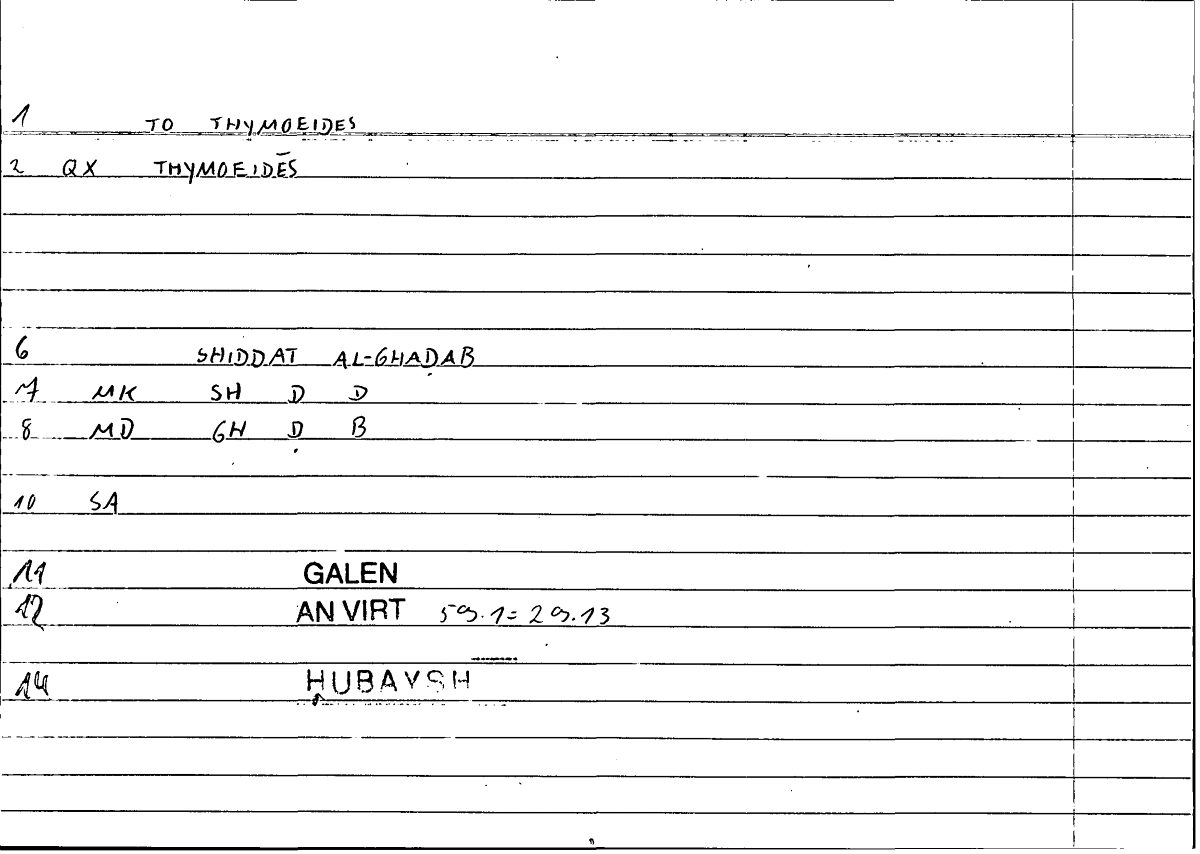 1 TO THYMOEIDES
2 QX THYMOEIDĒS
6 SHIDDAT AL-GHAḌAB
7 MK SH D D
8 MD GH Ḍ B
10 SA
11 GALEN
12 AN VIRT 59.1=29.13
14 ḤUBAYSH